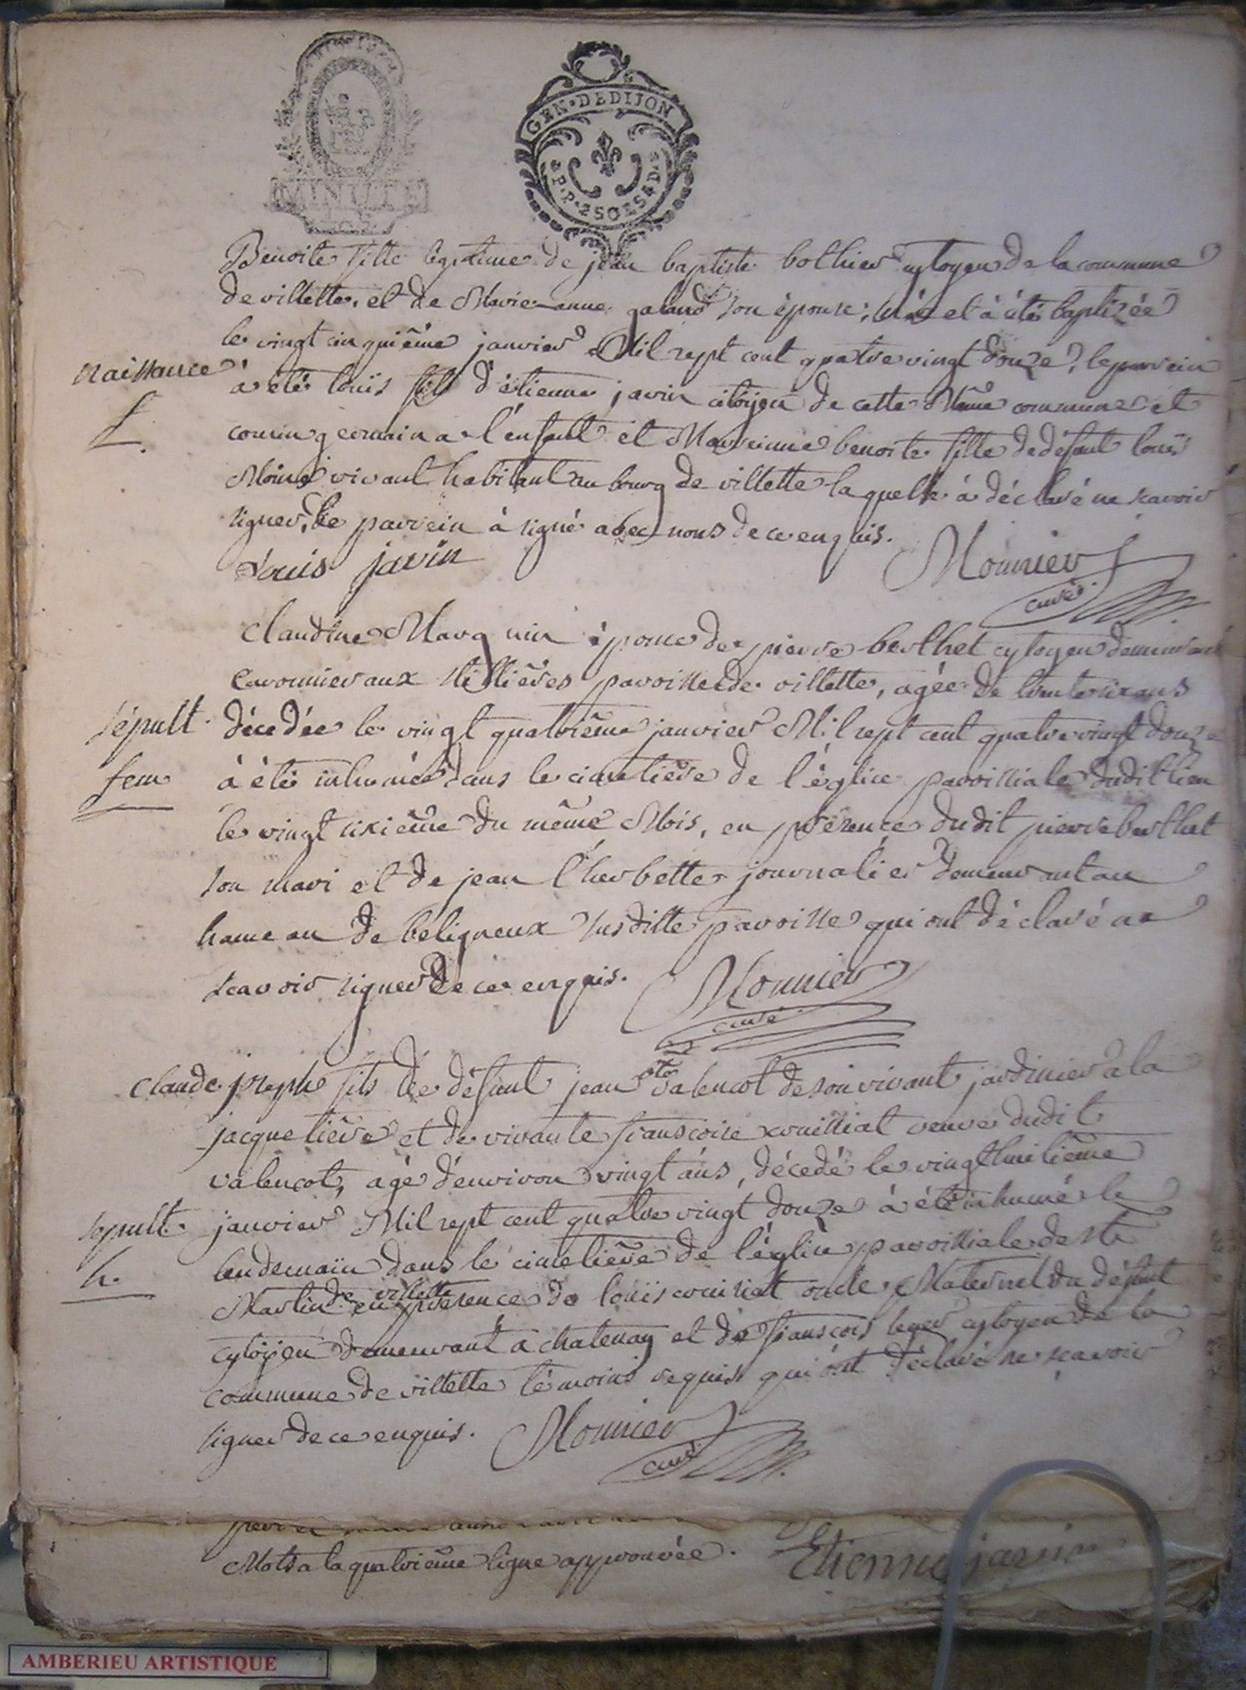 MINUTE
GEN. DE DIJON
P.P. 2 SOLS 8 D.
Benoite fille légitime de jean baptiste bothier cytoyen de la commune
de villette, et de Marie anne galand son épouse, née et à été baptizée
le vingt cinquiême janvier Mil sept cent quatre vingt douze, le parrein
naissance
à été loüis fils d'étienne javin citöyen de cette Même commune et
f.
cousin germain a l'enfant et Marreinne benoite fille de défunt loüis
Moine vivant habitant au bourg de villette laquelle à déclaré ne scavoir
signer, le parrein à signé avec nous de ce enquis.
Louis javin
Monnier
curé
Claudine Marguin épouse de pierre berthet cytoyen demeurant
aux paroisse de villette, agée de trente six ans
sépult.
décedée le vingt quatriême janvier Mil sept cent quatre vingt douze
fem
à été inhumée dans le cimetière de l'église paroissiale dudit lieu
le vingt sixiême du même Mois, en présence dudit pierre berthet
son mari et de jean l'herbette journalier demeurant au
hameau de béligneux susditte paroisse qui ont déclaré ne
scavoir signer de ce enquis.
Monnier
curé
Claude joseph fils de défunt jean valencot de son vivant jardinier à la
jacquetière et de vivante francoise veuve dudit
valencot, agé d'environ vingt ans, décedé le vingt huitième
sepult.
janvier Mil sept cent quatre vingt douze à été inhumé le
h.
lendemain dans le cimetiêre de l'église paroissiale de st
Martin de villette en présence de loüis oncle Maternel du défunt
cytöyen demeurant à chatenay et de francois leger cytoyen de la
commune de villette témoins requis qui ont déclaré ne scavoir
signer de ce enquis.
Monnier
curé
Mots a la quatrième ligne approuvée.
Etienne javin
AMBERIEU ARTISTIQUE